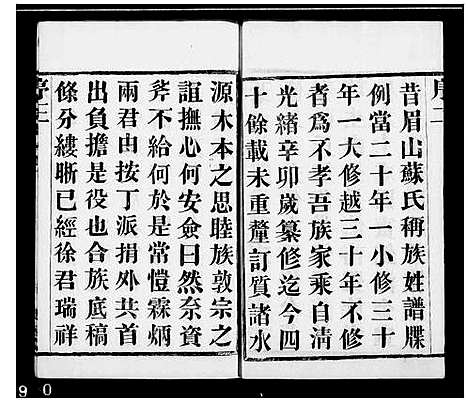 序二
昔眉山蘇氏稱族姓譜牒
例當二十年一小修三十
年一大修越三十年不修
者爲不孝吾族家乘自清
光緒辛卯歲纂修迄今四
十餘載未重釐訂質諸水
源木本之思睦族敦宗之
誼撫心何安僉曰然奈資
斧不給何於是常愷霖炳
兩君由按丁派捐外共首
出負擔是役也合族底稿
條分縷晰已經徐君瑞祥
序
9 0